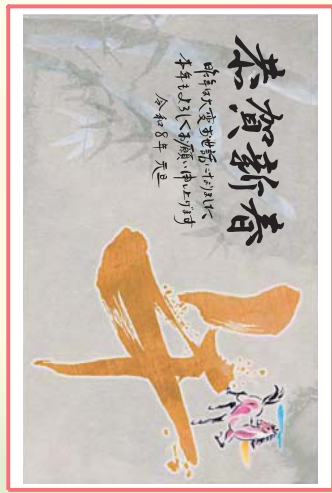 恭賀新春
昨年は大変お世話になりました
本年もよろしくお願い申し上げます
令和8年 元旦
午